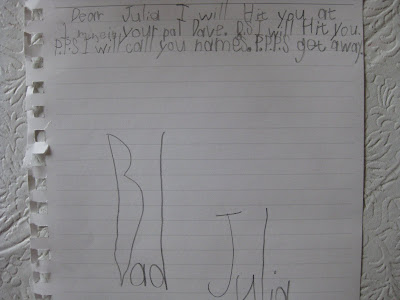 Dear Julia I will Hit you at
your pal Dave. P.S I will Hit you.
P.P.S I will call you names. P.P.P.S get away
Bad
Julia